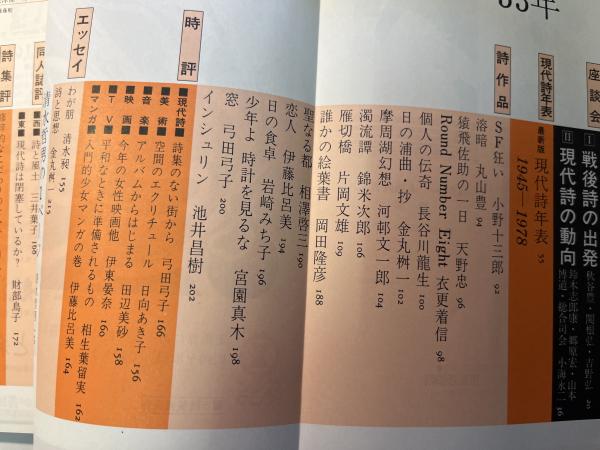 35年
座談会
Ⅰ 戦後詩の出発 秋谷豊・関根弘・吉野弘 20
Ⅱ 現代詩の動向 鈴木志郎康・郷原宏・山本
博道・総合司会 小海永二 26
現代詩年表
最新版 現代詩年表 55
1945—1978
詩作品
SF狂い 小野十三郎 92
溶暗 丸山豊 94
猿飛佐助の一日 天野忠 96
Round Number Eight 衣更着信 98
個人の伝奇 長谷川龍生 100
日の浦曲・抄 金丸桝一 102
摩周湖幻想 河邨文一郎 104
濁流譚 錦米次郎 106
雁切橋 片岡文雄 109
誰かの絵葉書 岡田隆彦 188
聖なる都 相澤啓三 190
恋人 伊藤比呂美 194
日の食卓 岩崎みち子 196
少年よ 時計を見るな 宮園真木 198
窓 弓田弓子 200
インシュリン 池井昌樹 202
時評
■現代詩■ 詩集のない街から 弓田弓子 166
■美術■ 空間のエクリチュール 日向あき子 156
■音楽■ アルバムからはじまる 田辺美砂 158
■映画■ 今年の女性映画他 伊東晏奈 160
■TV■ 平和なときに準備されるもの 相生葉留実 162
■マンガ■ 入門的少女マンガの巻 伊藤比呂美 164
エッセイ
わが朋 清水昶 155
詩と思想 金丸桝一 215
同人誌評
■西■ 詩と風土 三井葉子 169
■東■ 現代詩は閉塞しているか？ 財部鳥子 172
詩集評